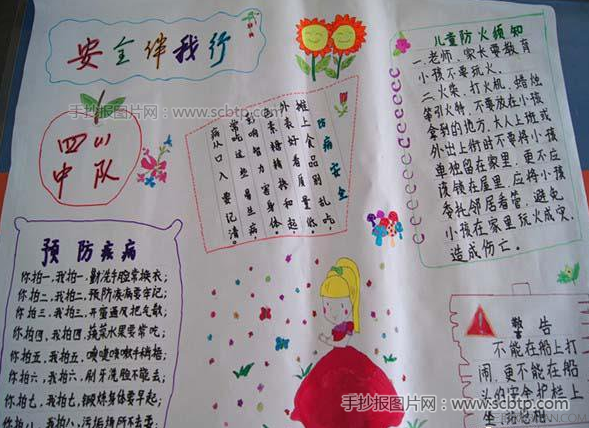 安全伴我行
手抄报图片网：www.scbtp.com
四(4)
中队
预防疾病
你拍一，我拍一，勤洗手脸常换衣；
你拍二，我拍二，预防
你拍三，我拍三，开窗通风把气散；
你拍四，我拍四，蔬菜水果要常吃；
你拍五，我拍五，
你拍六，我拍六，刷牙洗脸不能丢；
你拍七，我拍七，锻炼身体要早起；
你拍八，我拍八，
防病安全
摊上食品别乱吃，
外表好看质量低。
影响智力害身体，
常吃这些易生病，
病从口入要记清。
儿童防火须知
一、老师、家长要教育
小孩不要玩火。
二、火柴、打火机、蜡烛
等引火物，不要放在小孩
拿到的地方，大人上班或
外出上街时不要将小孩
单独留在家里，更不应
该锁在屋里，应将小孩
委托邻居看管，避免
小孩在家里玩火成灾，
造成伤亡。
警告
不能在船上打
闹，更不能在船
头的安全护栏上
手抄报图片网：www.scbtp.com